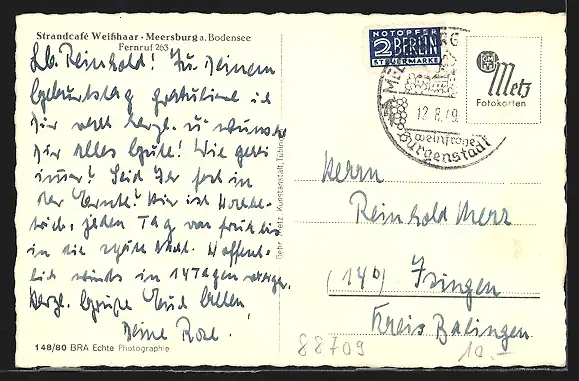 Strandcafé Weißhaar · Meersburg a. Bodensee
Fernruf 263
Lb. Reinhold! Zu Deinem
Geburtstag gratuliere ich
Dir recht herzl. u. wünsche
Dir alles Gute! Wie geht
immer! Seid Ihr fest in
der Ernte! Hier ist Hochbe-
trieb, jeden Tag von früh bis
in die späte Nacht. Hoffent-
lich wirds in 14 Tagen ruhiger.
Herzl. Grüße Euch Allen
Deine Rosel.
148/80 BRA Echte Photographie
Gebr. Metz, Kunstanstalt, Tübingen
NOTOPFER
2 BERLIN
STEUERMARKE
12.8.49
weinfrohe
Burgenstadt
Metz
Fotokarten
Herrn
Reinhold Merz
(14b) Isingen
Kreis Balingen
88709
10.-